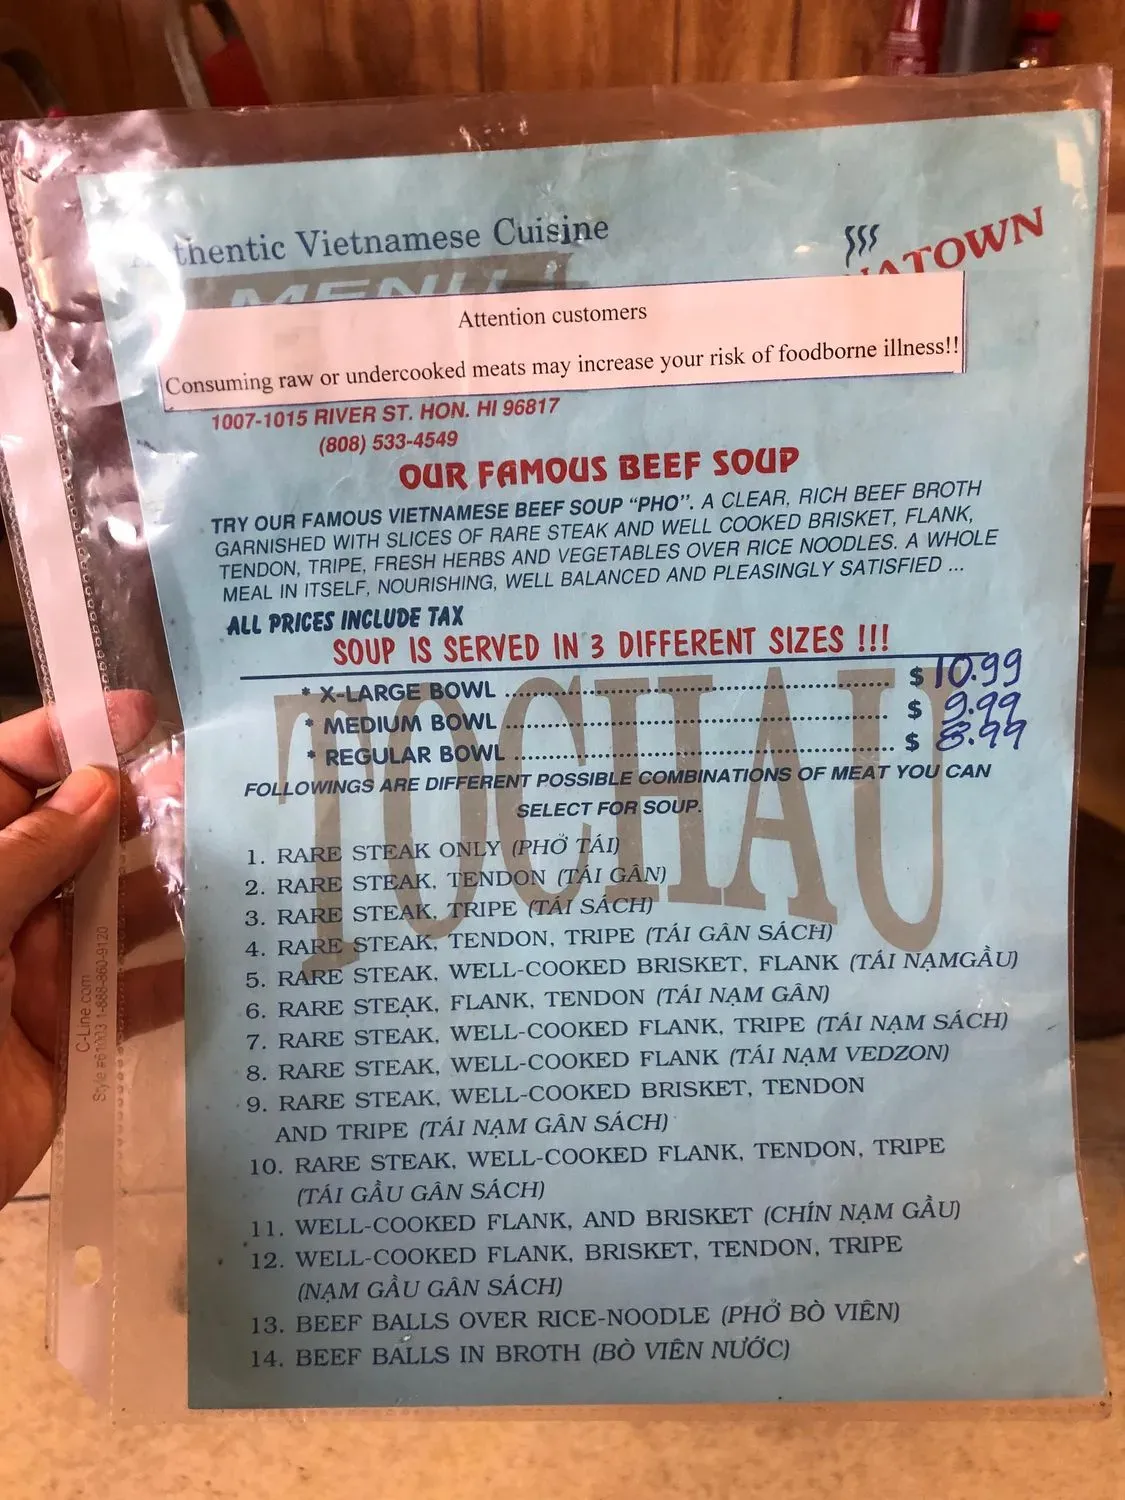 thentic Vietnamese Cuisine
MENU
ATOWN
Attention customers
Consuming raw or undercooked meats may increase your risk of foodborne illness!!
1007-1015 RIVER ST. HON. HI 96817
(808) 533-4549
OUR FAMOUS BEEF SOUP
TRY OUR FAMOUS VIETNAMESE BEEF SOUP "PHO". A CLEAR, RICH BEEF BROTH
GARNISHED WITH SLICES OF RARE STEAK AND WELL COOKED BRISKET, FLANK,
TENDON, TRIPE, FRESH HERBS AND VEGETABLES OVER RICE NOODLES. A WHOLE
MEAL IN ITSELF, NOURISHING, WELL BALANCED AND PLEASINGLY SATISFIED ...
ALL PRICES INCLUDE TAX
SOUP IS SERVED IN 3 DIFFERENT SIZES !!!
* X-LARGE BOWL ........ $ 10.99
* MEDIUM BOWL ........ $ 9.99
* REGULAR BOWL ........ $ 8.99
FOLLOWINGS ARE DIFFERENT POSSIBLE COMBINATIONS OF MEAT YOU CAN
SELECT FOR SOUP.
TOCHAU
1. RARE STEAK ONLY (PHỞ TÁI)
2. RARE STEAK, TENDON (TÁI GÂN)
3. RARE STEAK, TRIPE (TÁI SÁCH)
4. RARE STEAK, TENDON, TRIPE (TÁI GÂN SÁCH)
5. RARE STEAK, WELL-COOKED BRISKET, FLANK (TÁI NẠMGẦU)
6. RARE STEAK, FLANK, TENDON (TÁI NẠM GÂN)
7. RARE STEAK, WELL-COOKED FLANK, TRIPE (TÁI NẠM SÁCH)
8. RARE STEAK, WELL-COOKED FLANK (TÁI NẠM VEDZON)
9. RARE STEAK, WELL-COOKED BRISKET, TENDON
AND TRIPE (TÁI NẠM GÂN SÁCH)
10. RARE STEAK, WELL-COOKED FLANK, TENDON, TRIPE
(TÁI GẦU GÂN SÁCH)
11. WELL-COOKED FLANK, AND BRISKET (CHÍN NẠM GẦU)
12. WELL-COOKED FLANK, BRISKET, TENDON, TRIPE
(NẠM GẦU GÂN SÁCH)
13. BEEF BALLS OVER RICE-NOODLE (PHỞ BÒ VIÊN)
14. BEEF BALLS IN BROTH (BÒ VIÊN NƯỚC)
C-Line.com
Style #61003 1-888-860-9120